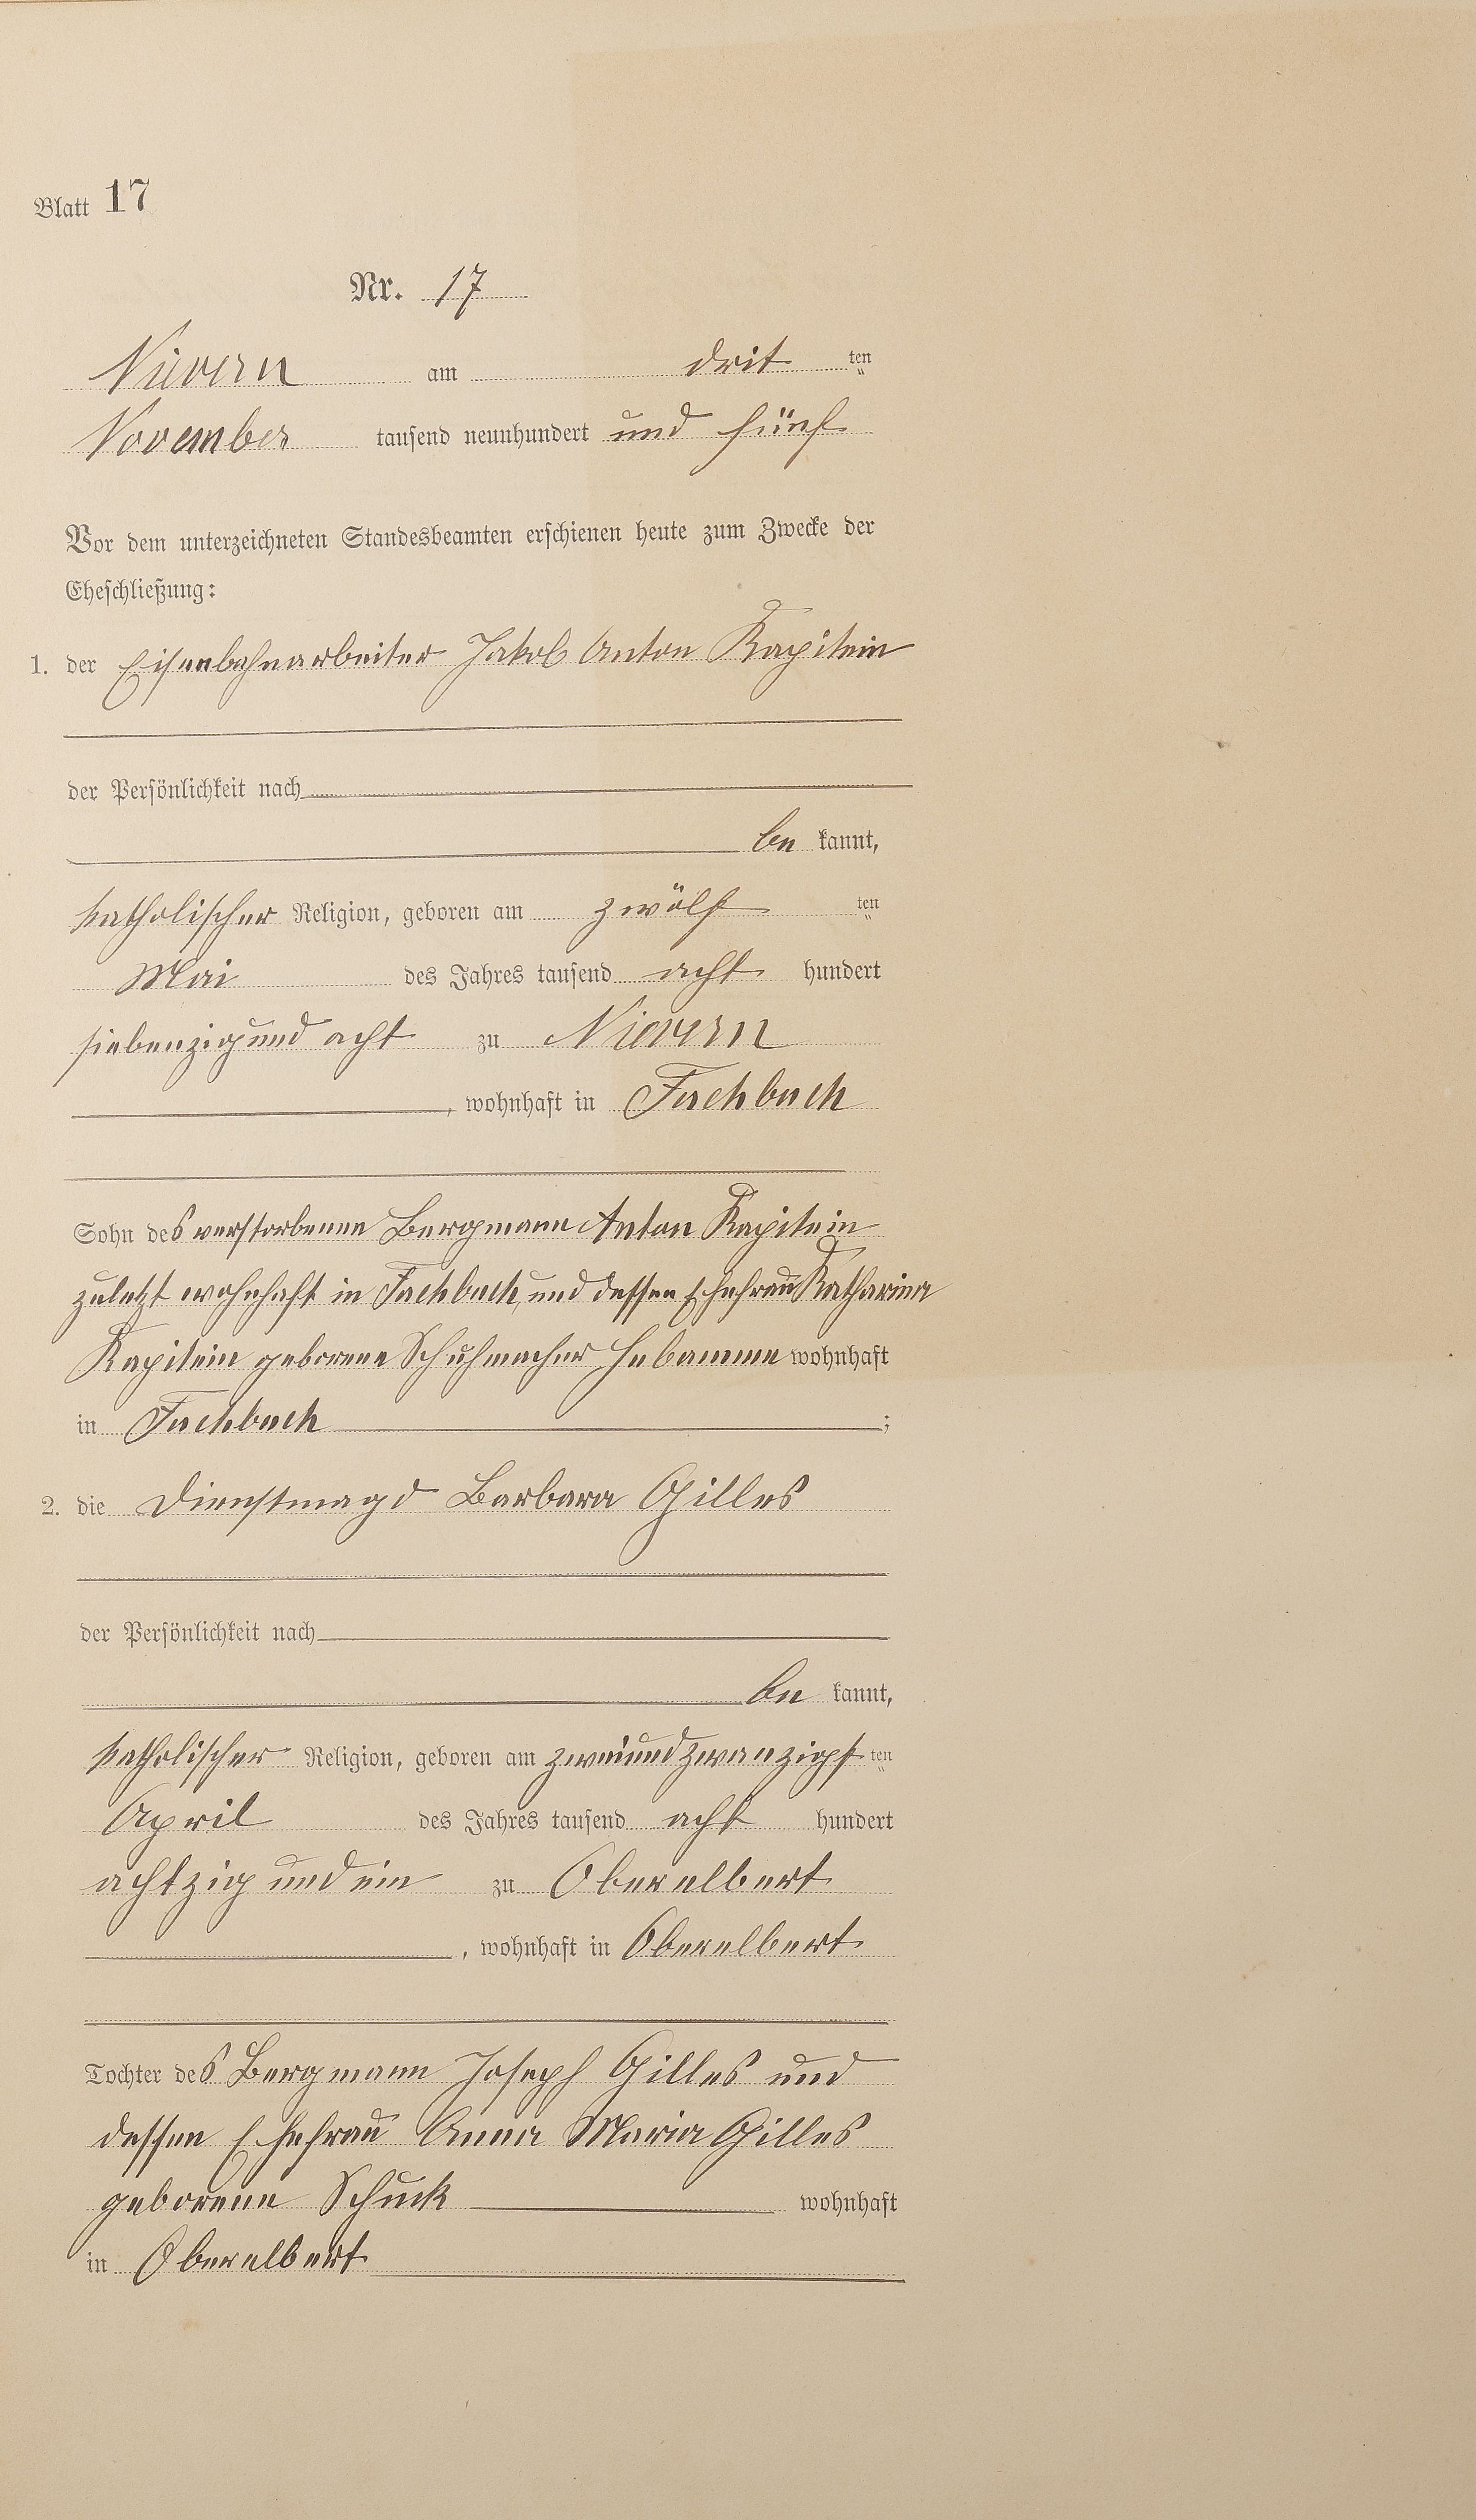 Blatt 17
Nr. 17
Nievern am drit ten
November tausend neunhundert und fünf
Vor dem unterzeichneten Standesbeamten erschienen heute zum Zwecke der
Eheschließung:
1. der Eisenbahnarbeiter Jakob Anton Kapitein
der Persönlichkeit nach
be kannt,
katholischer Religion, geboren am zwölf ten
Mai des Jahres tausend acht hundert
siebenzig und acht zu Nievern
, wohnhaft in Fachbach
Sohn des verstorbenen Bergmann Anton Kapitein
zuletzt wohnhaft in Fachbach, und dessen Ehefrau Katharina
Kapitein geborene Schuhmacher Hebamme wohnhaft
in Fachbach ;
2. die Dienstmagd Barbara Gilles
der Persönlichkeit nach
be kannt,
katholischer Religion, geboren am zweiundzwanzigst ten
April des Jahres tausend acht hundert
achtzig und ein zu Oberelbert
, wohnhaft in Oberelbert
Tochter des Bergmann Joseph Gilles und
dessen Ehefrau Anna Maria Gilles
geborene Schuck wohnhaft
in Oberelbert